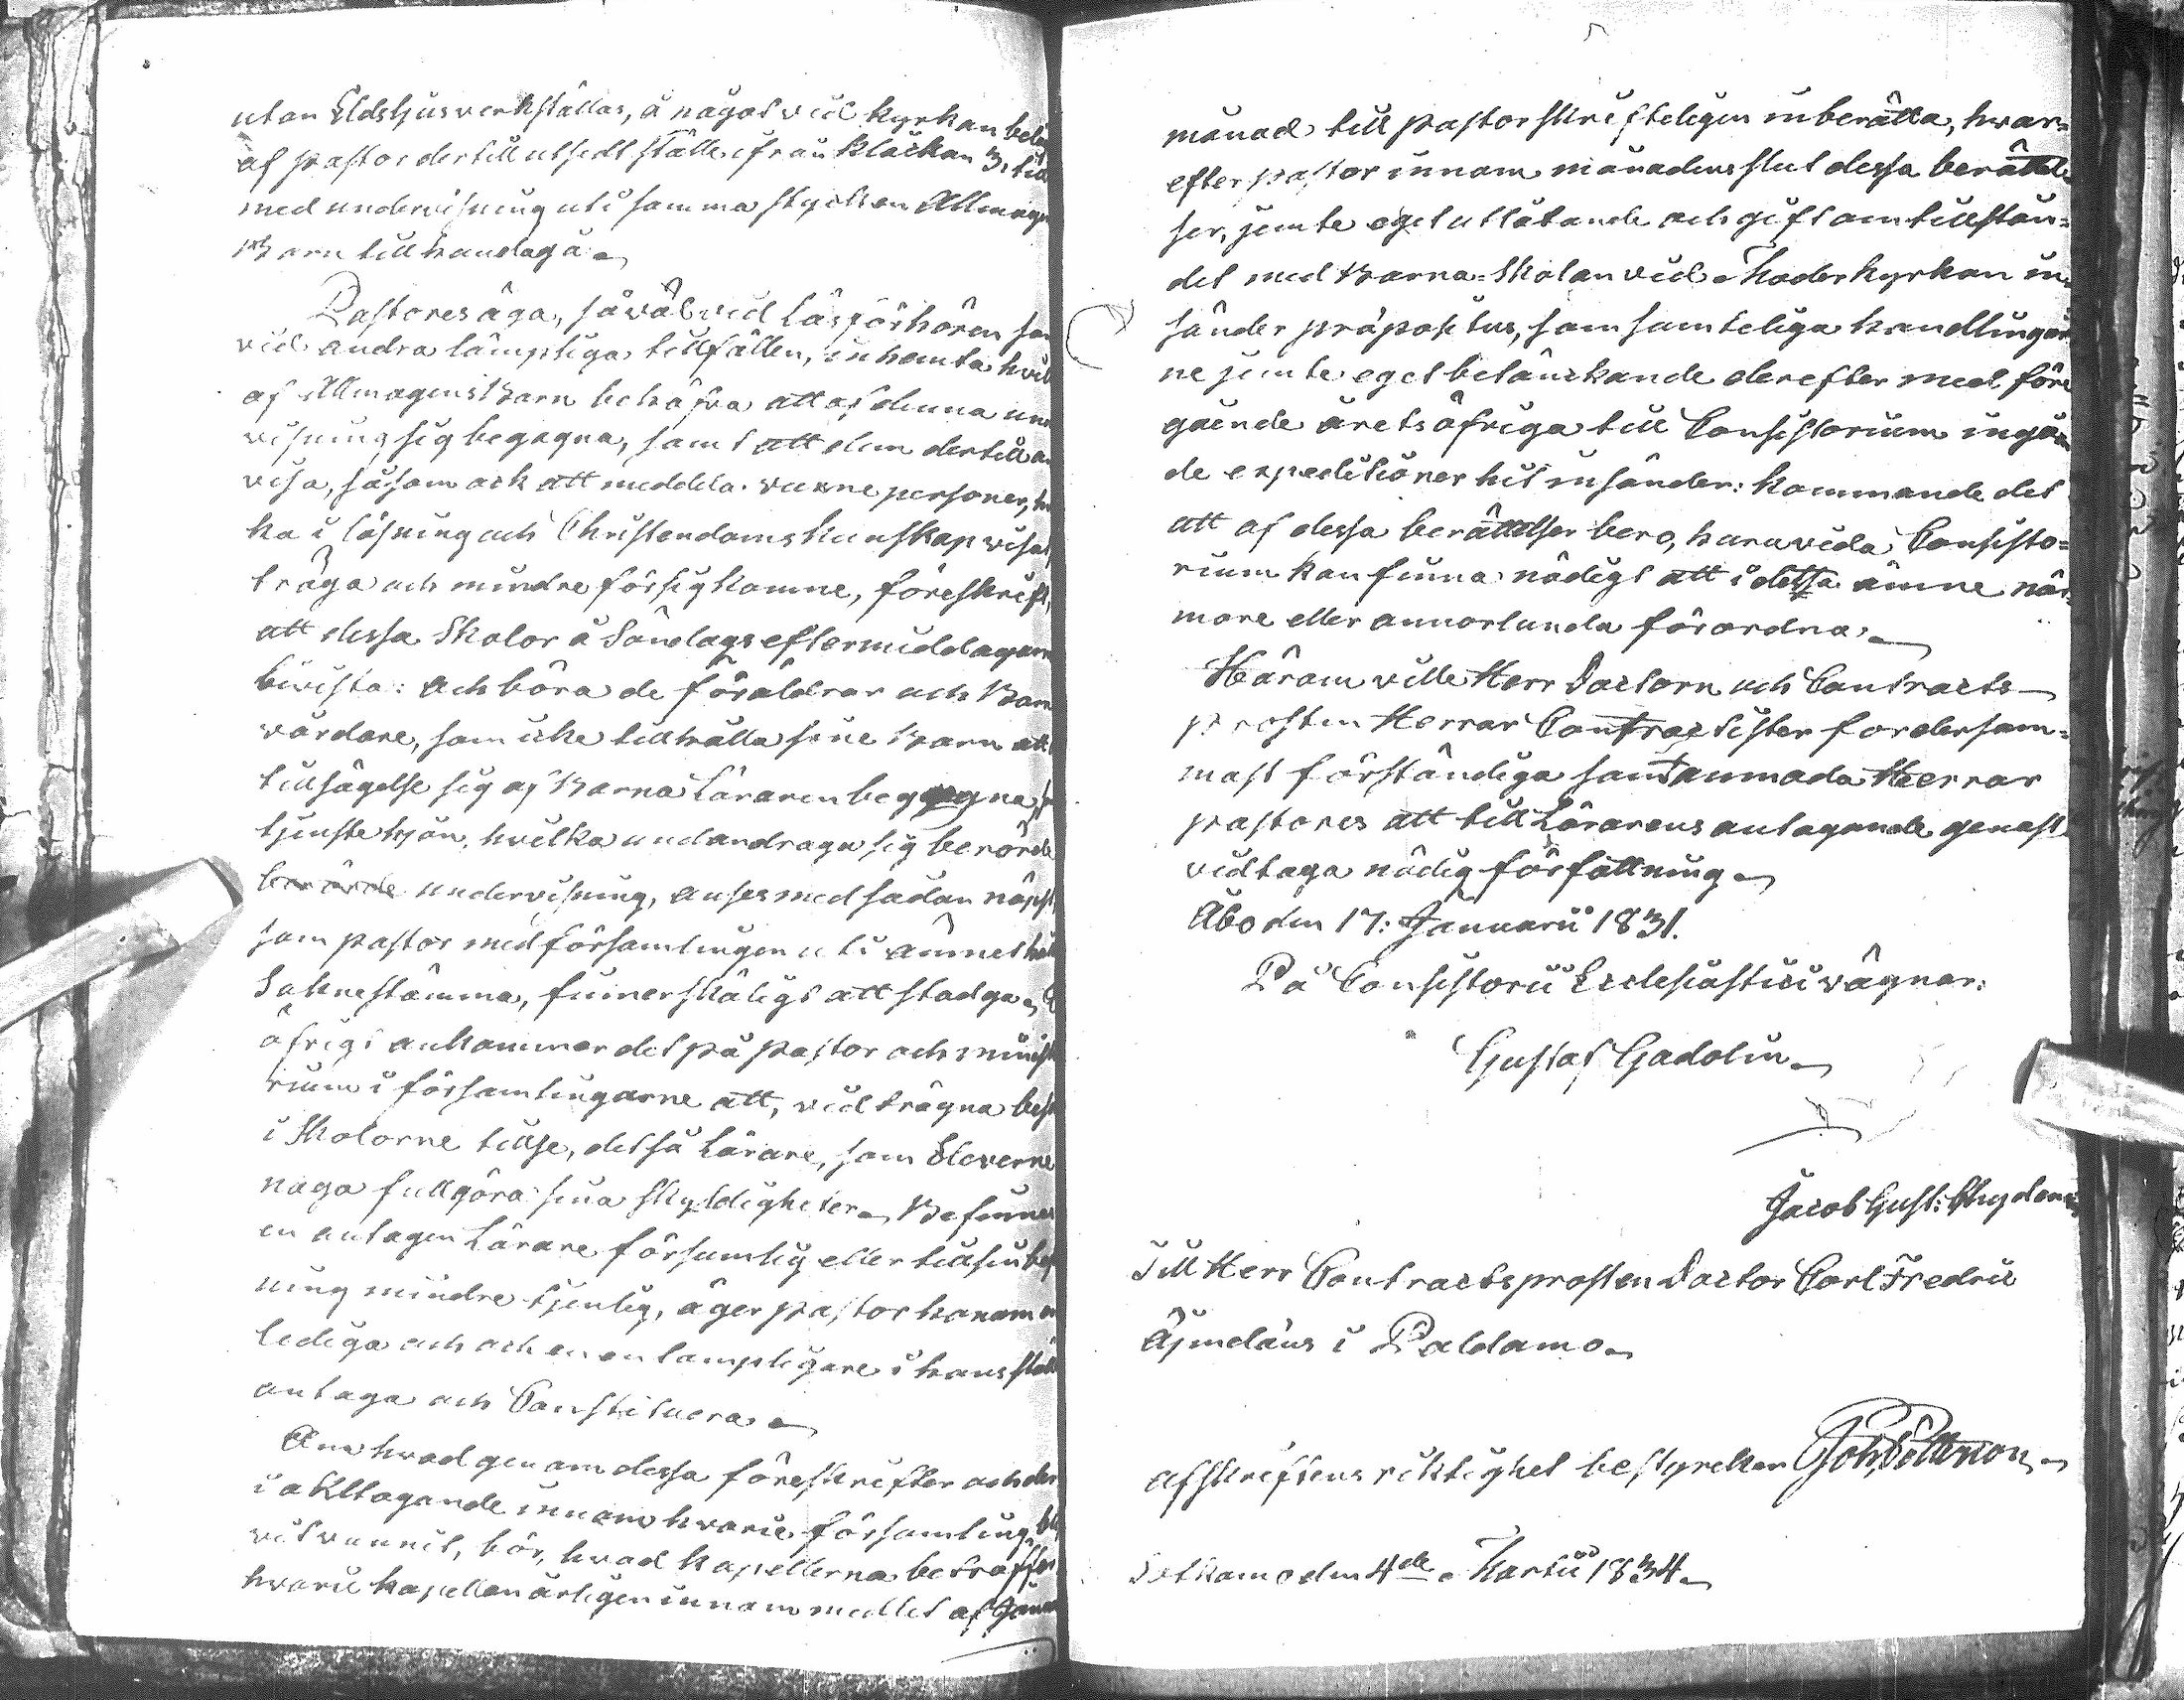 utan Eldsljus verkställas, å något vid kyrkan belä
af pastor dertill utsedt ställe, ifrån klåckan 3, till
med undervisning uti samma stycken Allmoge
Barn tillhandagå.
Pastores äga, såväl vid Läsförhören som
vid andra lämpliga tillfällen, inhemta hvil
af Allmogens Barn behöfva att af denna und
visning sig begagna, samt att dem dertill an
visa, såsom ock att meddela vuxne personer, hvil
ka i läsning och Christendoms kunskap visat
tröga och mindre försigkomne, föreskrift,
att dessa Skolor å Söndags eftermiddagarn
bivista: och böra de föräldrar och Barn
vårdare, som icke tillhålla sine Barn att
tillsägelse sig af Barna Läraren begagna,
tjenstehjon, hvilka undandraga sig berörde
berörde undervisning, anses med sådan näpst,
som pastor med församlingen uti ämnet håll
Soknestämma, finner skäligt att stadga.
öfrigt ankommer det på pastor och minist
rium i församlingarne att, vid trägna besö
i Skolorne tillse, det så Lärare, som Eleverne
noga fullgöra sina skyldigheter. Befinnes
en antagen Lärare försumlig eller till sin bef
ning mindre tjenlig, äger pastor honom en
lediga och och en en lämpligare i hans ställ
antaga och Constituera.
Om hvad genom dessa föreskrifter och der
iakttagande innom hvarie församling bli
vit vunnit, bör, hvad kapellerna beträffar
hvarie kapellan årligen innom medlet af Janu
månad till pastor skrifteligen inberätta, hvar=
efter pastor innom månadens slut dessa berättel=
ser, jemte eget utlåtande och gift om tillstån=
det med Barna=Skolan vid Moderkyrkan in=
sänder præpositus, som samteliga handlingar
ne jemte eget betänkande derefter med före
gående årets öfriga till Consistorium ingåen
de expeditioner hit insänder: kommande det
att af dessa berättelser bero, huruvida Consisto=
rium kan finna nödigt att i detta ämne när=
mare eller annorlunda förordna.
Härom ville Herr Doctorn och Contracts
prosten Herrar Contractister fordersam=
mast förständiga samt anmoda Herrar
pastores att till Lärarens antagande genast
vidtaga nödig författning.
Åbo den 17: Januarii 1831.
På Consistorii Ecclesiastici vägnar:
Gustaf Gadolin.
Jacob Gust: Chydenius
Till Herr Contractsprosten Doctor Carl Fredric
Äjmelæus i Paldamo.
Afskriftens riktighet bestyrcker
Sotkamo den 4de Martii 1834.